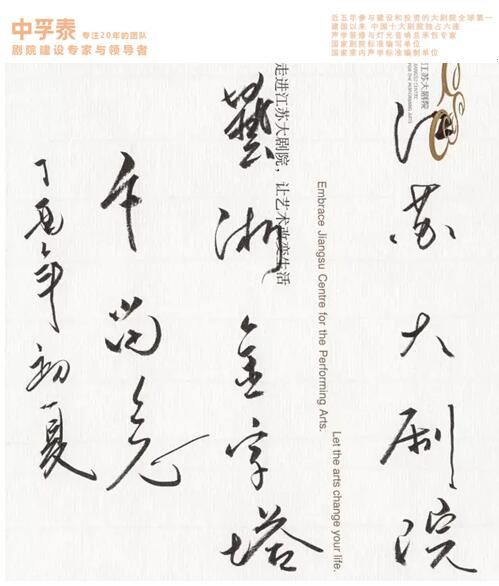 中孚泰 专注20年的团队
剧院建设专家与领导者
近五年参与建设和投资的大剧院全球第一
建国以来 中国十大剧院独占六座
声学装修与灯光音响总承包专家
国家剧院标准编写单位
国家室内声学标准编制单位
江苏大剧院
JIANGSU CENTRE
FOR THE PERFORMING ARTS
江苏大剧院
Let the arts change your life.
Embrace Jiangsu Centre for the Performing Arts.
走进江苏大剧院，让艺术改变生活
藝術金字塔
丁酉年初夏